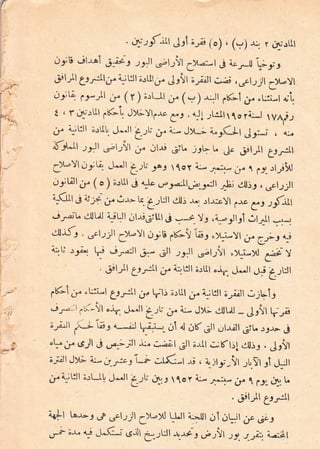 المادتين ٢ بند (ب) ، (٥) فقرة أولى المذكورتين .
وتوخياً للسرعة فى استصلاح الأراضى البور وتحقيق أهداف قانون
الاصلاح الزراعى، قضت الفقرة الأولى من المادة الثانية من المشروع المرافق
بأنه استثناء من أحكام البند (ب) من المادة (٢) من المرسوم بقانون
رقم ١٧٨ لسنة ١٩٥٢ المشار إليه . ومع عدم الاخلال بأحكام المادتين ٣ ، ٤
منه ، تستولى الحكومة خلال سنة من تاريخ العمل بالمادة الثانية من
المشروع المرافق على ما جاوز مائتى فدان من الأراضى البور المملوكة
للأفراد يوم ٩ من سبتمبر سنة ١٩٥٢ وهو تاريخ العمل بقانون الاصلاح
الزراعى ، وذلك نظير التعويض المنصوص عليه فى المادة (٥) من القانون
المذكور ومع عدم الاعتداد بعد ذلك التاريخ بما حدث من تجزئة فى الملكية
بسبب الميراث أو الوصية، ولا يحسب فى المائتى فدان الباقية للمالك ما تصرف
فيه وخرج من الاستيلاء وفقاً لأحكام قانون الاصلاح الزراعى . وكذلك
لا تخضع للاستيلاء الأراضى البور التى سبق التصرف فيها بعقود ثابتة
التاريخ قبل العمل بهذه المادة الثابتة من المشروع المرافق .
وأجازت الفقرة الثانية من المادة ذاتها من المشروع استثناء من أحكام
فقرتها الأولى .. للمالك خلال سنة من تاريخ العمل بهذه الأحكام التصرف
فى حدود مائتى الفدان التى كان له أن يستبقيها لنفسه وفقاً لحكم الفقرة
الأولى . وذلك إذا كانت المدة التى انقضت منذ الترخيص فى الرى من مياه
النيل أو الآبار الأرتوازية ، قد استكملت خمساً وعشرين سنة خلال الفترة
ما بين يوم ٩ من سبتمبر سنة ١٩٥٢ وبين تاريخ العمل بالمادة الثانية من
المشروع المرافق .
وغنى عن البيان أن اللجنة العليا للاصلاح الزراعى هى وحدها الجهة
المختصة بتقرير بور الأرض وتحديد التاريخ الذى تستكمل فيه مدة خمس